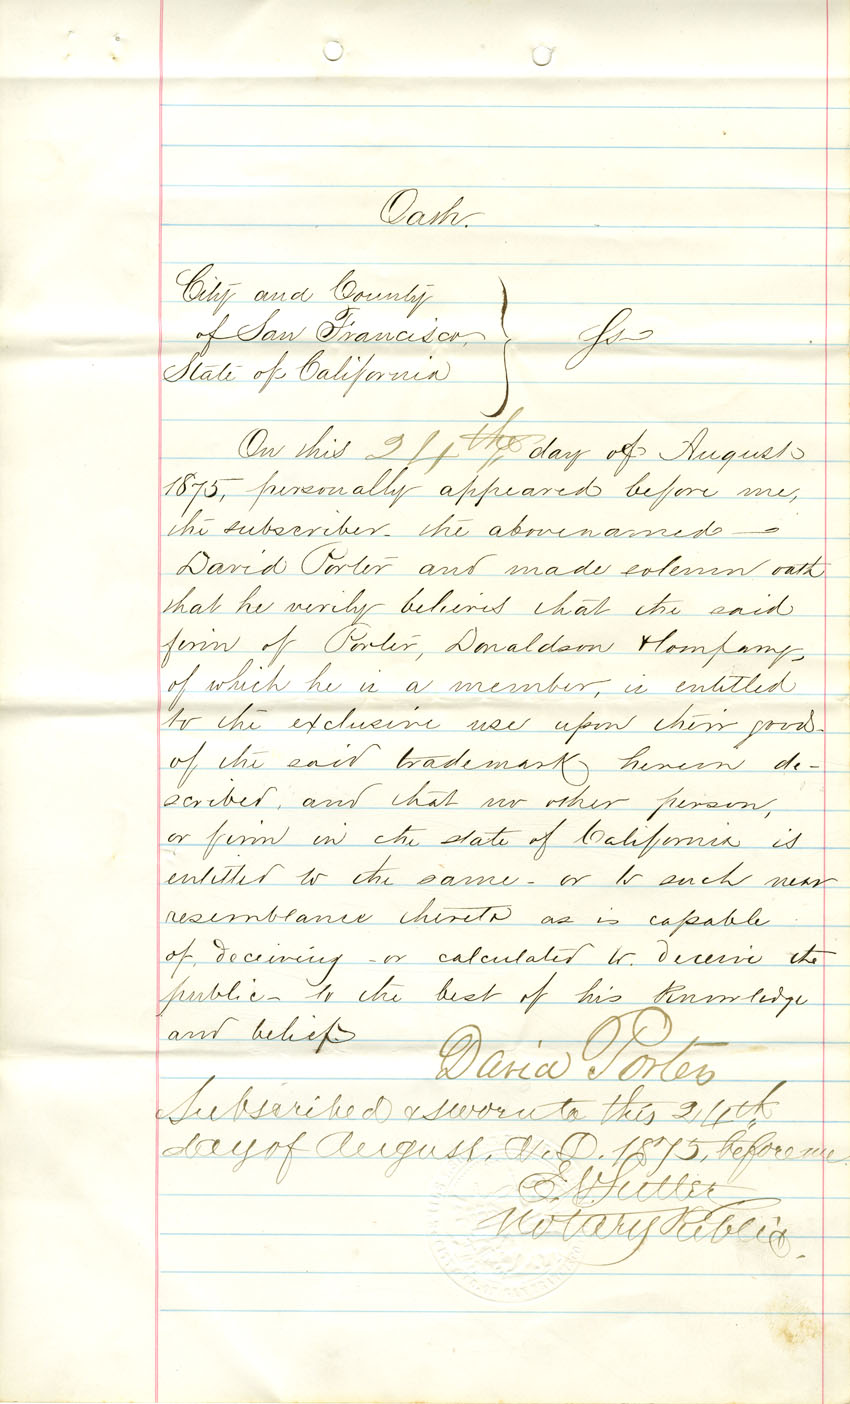 Oath.
City and County
of San Francisco,
State of California } Ss
On this 24th day of August
1875, personally appeared before me,
the subscriber - the abovenamed —
David Porter and made solemn oath
that he verily believes that the said
firm of Porter, Donaldson & Company,
of which he is a member, is entitled
to the exclusive use upon their goods
of the said trademark herein de-
scribed, and that no other person,
or firm in the state of California is
entitled to the same - or to such near
resemblance thereto as is capable
of deceiving - or calculated to deceive the
public - to the best of his knowledge
and belief
David Porter
Subscribed & sworn to this 24th
day of August, A.D. 1875, before me
E.V. Sutter
Notary Public.